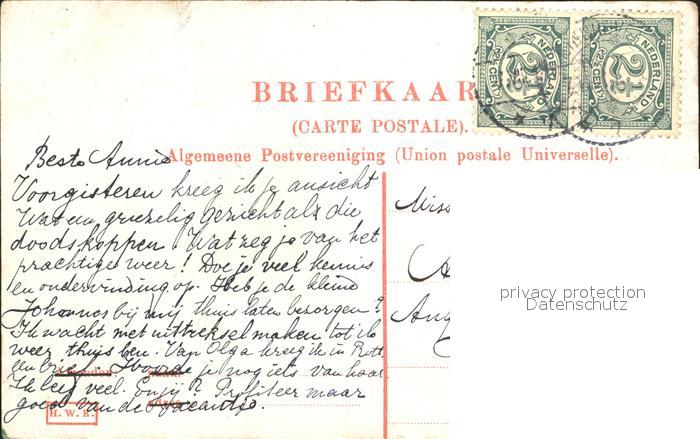 BRIEFKAAR
(CARTE POSTALE).
Algemeene Postvereeniging (Union postale Universelle).
NEDERLAND
2½
CENT
NEDERLAND
2½
CENT
Beste Annie
Voorgisteren kreeg ik je ansicht
Wat een griezelig gezicht als die
doodskoppen. Wat zeg je van het
prachtige weer! Doe je veel kennis
en ondervinding op. Heb je de kleine
Johannes bij mij thuis laten bezorgen?
Ik wacht met uittreksel maken tot ik
weer thuis ben. Van Olga kreeg ik in Rott.
een brief. Hoorde je nog iets van haar
Ik leef veel. En jij? Profiteer maar
goed van de vacantie.
H.W.B.
Miss
A
Aug
privacy protection
Datenschutz